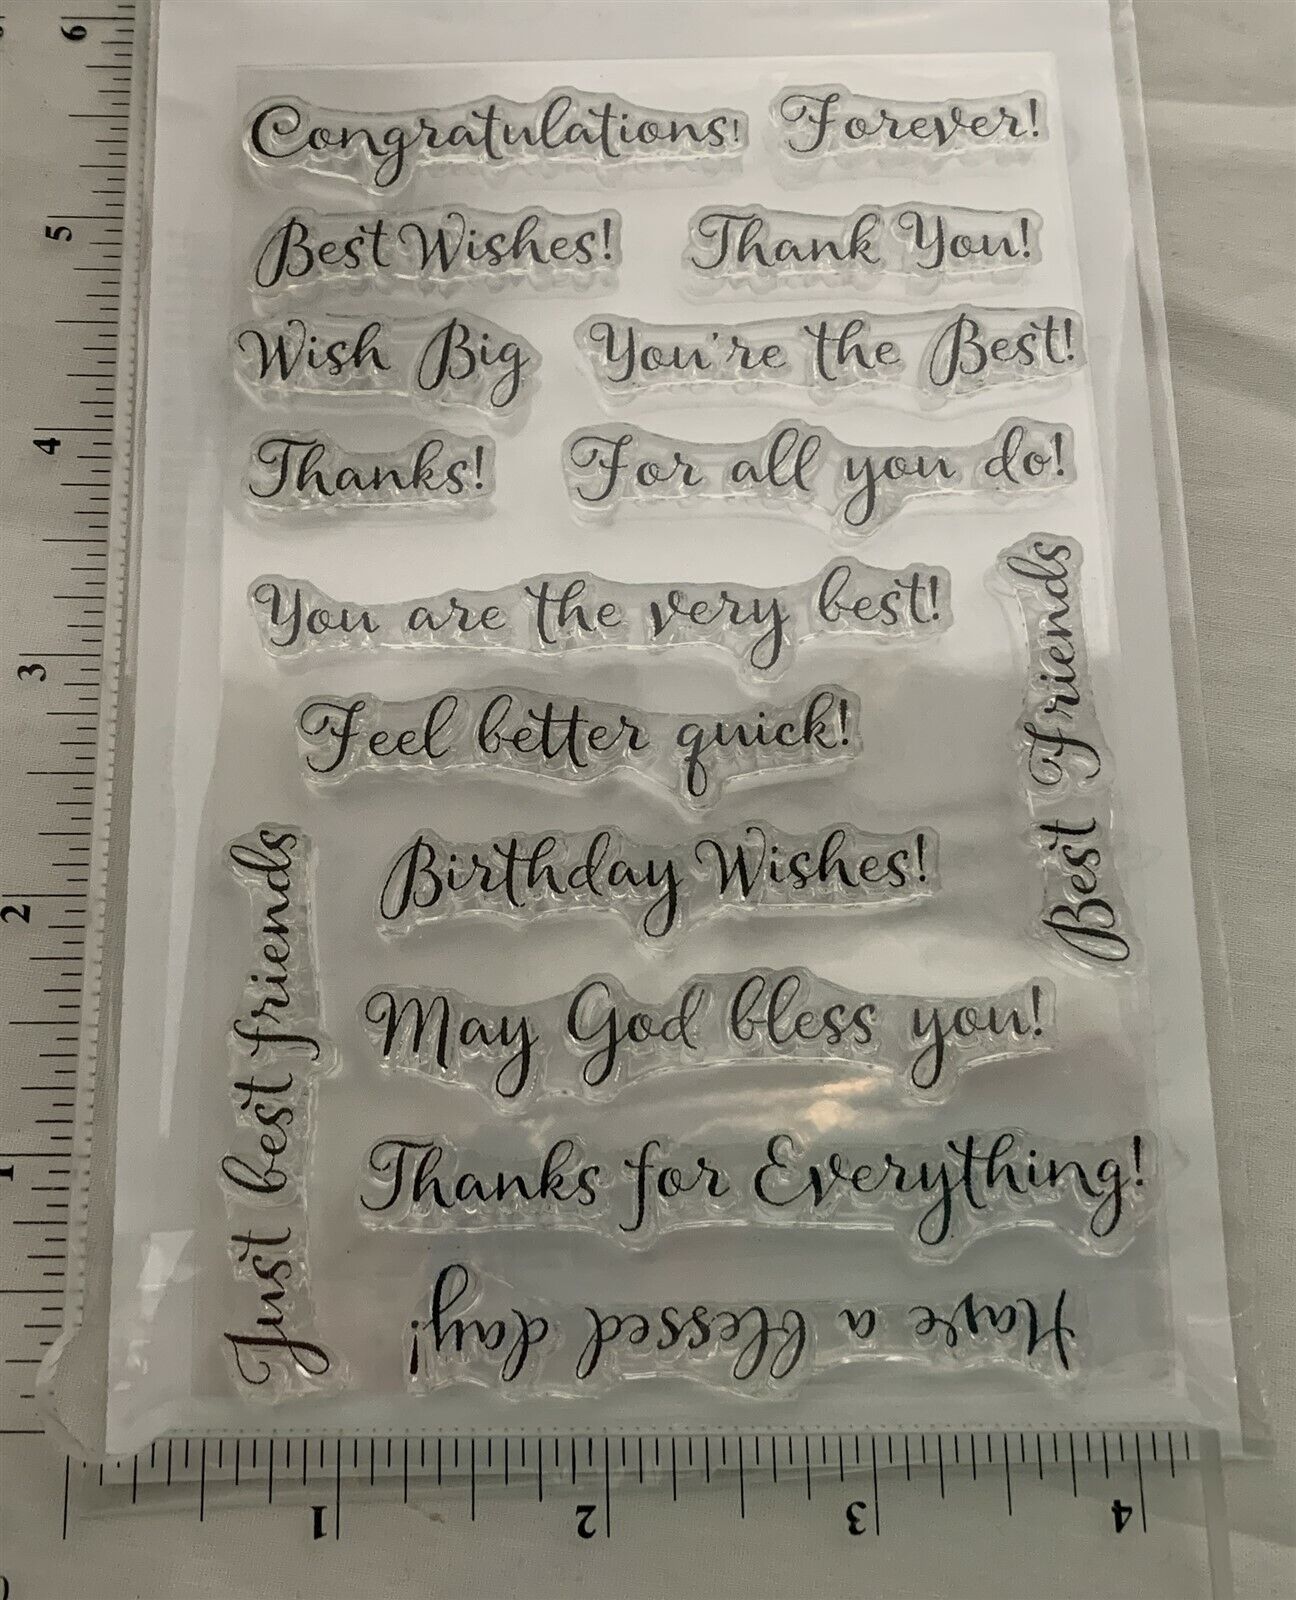 Congratulations! Forever!
Best Wishes! Thank You!
Wish Big You're the Best!
Thanks! For all you do!
You are the very best!
Best Friends
Feel better quick!
Birthday Wishes!
Just best friends
May God bless you!
Thanks for Everything!
Have a blessed day!
6
5
4
3
2
1
1 2 3 4